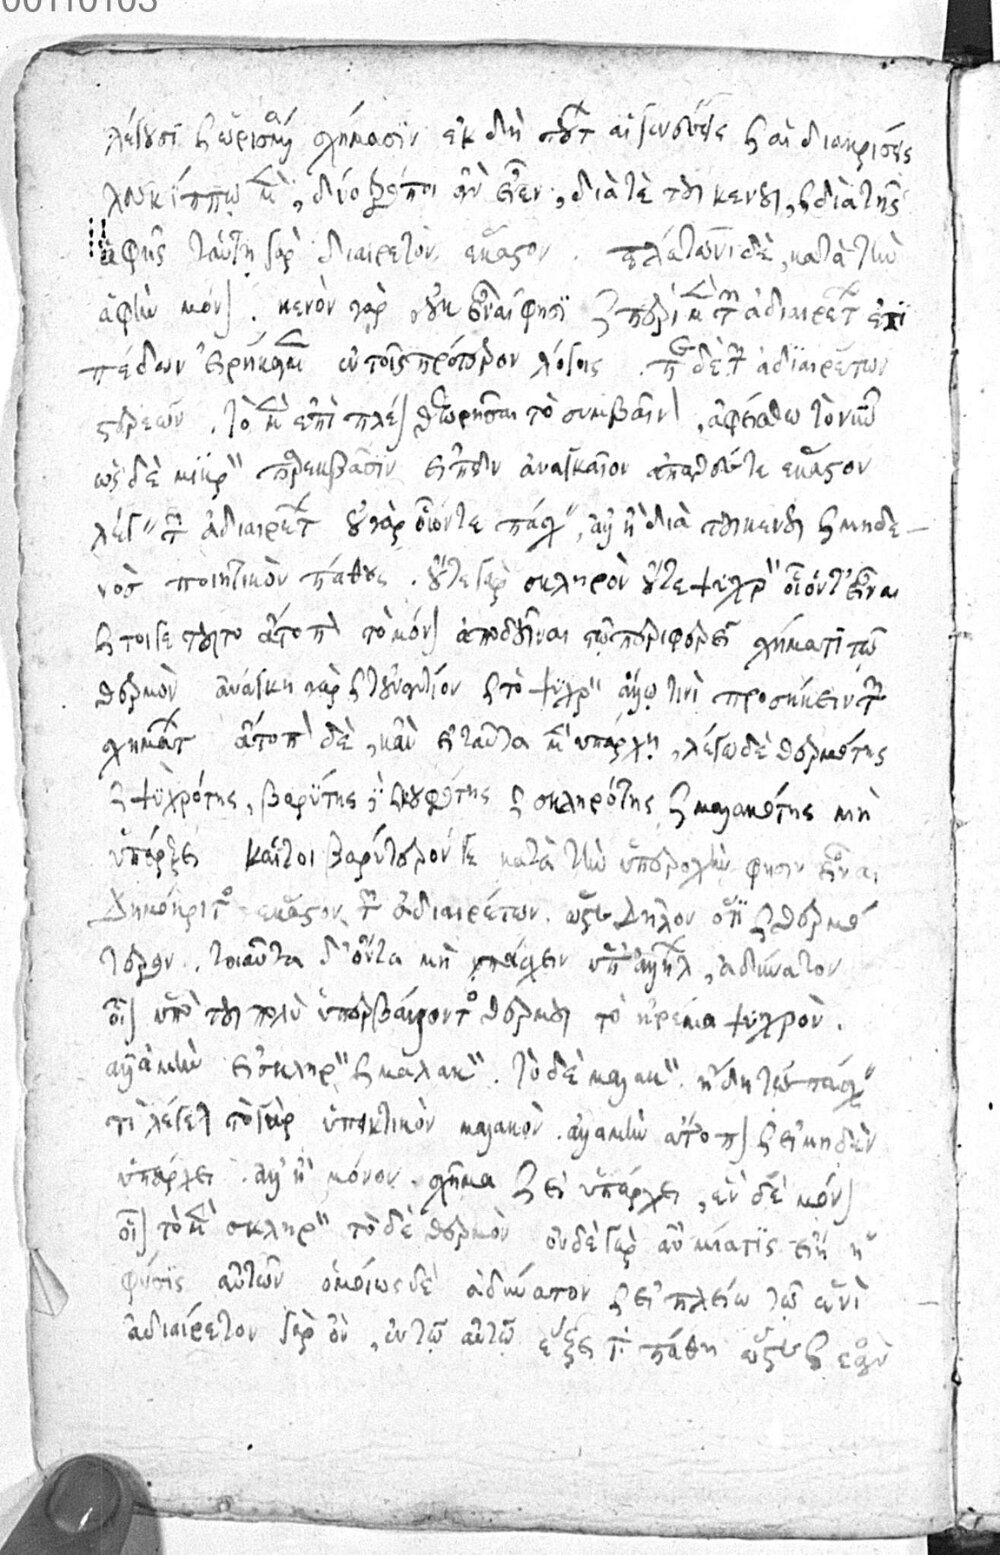 λέγουσι καὶ ὡρισμένων σχήμασιν ἐκ δὴ τούτων αἱ γενέσεις καὶ αἱ διακρίσεις
λευκίππω μὲν, δύο τρόποι ἂν εἶεν, διὰ τὲ τοῦ κενοῦ, καὶ διὰ τῆς
ἁφῆς ταύτη γὰρ διαιρετὸν ἕκαστον. πλάτωνι δὲ, κατὰ τὴν
ἁφὴν μόνον. κενὸν γὰρ οὐκ εἶναί φησι καὶ περὶ μὲν τῶν ἀδιαιρέτων ἐπι
πέδων εἰρήκαμεν ἐν τοῖς πρότερον λόγοις. περὶ δὲ τῶν ἀδιαιρέτων
στερεῶν. τὸ μὲν ἐπὶ πλέον θεωρῆσαι τὸ συμβαῖνον, ἀφείσθω τὸ νῦν
ὡς δὲ μικρὸν παρεκβᾶσιν εἰπεῖν ἀναγκαῖον ἀπαθές τε ἕκαστον
λέγειν τῶν ἀδιαιρέτων οὐ γὰρ οἷόντε πάσχειν, ἀλλ' ἢ διὰ τοῦ κενοῦ καὶ μηδε
νὸς ποιητικὸν πάθους. οὔτε γὰρ σκληρὸν οὔτε ψυχρὸν οἷόντ' εἶναι
καὶ τοί γε τοῦτο ἄτοπον τὸ μόνον ἀποδοῦναι τῷ περιφερεῖ σχήματι τὸ
θερμὸν ἀνάγκη γὰρ καὶ τοὐναντίον καὶ τὸ ψυχρὸν ἄλλω τινὶ προσήκειν τῶν
σχημάτων ἄτοπον δὲ, κἂν εἰ ταῦτα μὲν ὑπάρχει, λέγω δὲ θερμότης
καὶ ψυχρότης, βαρύτης δὲ καὶ κουφότης καὶ σκληρότης καὶ μαλακότης μὴ
ὑπάρξει καίτοι βαρύτερόν γε κατὰ τὴν ὑπεροχὴν φησιν εἶναι
Δημόκριτος ἕκαστον τῶν ἀδιαιρέτων. ὥστε δῆλον ὅτι καὶ θερμό
τερον. τοιαῦτα δ' ὄντα μὴ πάσχειν ὑπ' ἀλλήλων, ἀδύνατον
οἷον ὑπὸ τοῦ πολὺ ὑπερβάλλοντος θερμοῦ τὸ ἠρέμα ψυχρὸν.
ἀλλὰ μὴν εἰ σκληρὸν καὶ μαλακὸν. τὸ δὲ μαλακὸν ἤδη τῷ πάσχειν
τι λέγεται τὸ γὰρ ὑπεικτικὸν μαλακὸν. ἀλλὰ μὴν ἄτοπον καὶ εἰ μηδὲν
ὑπάρχει. ἀλλ' ἢ μόνον σχῆμα καὶ εἰ ὑπάρχει, ἓν δὲ μόνον
οἷον τὸ μὲν σκληρὸν τὸ δὲ θερμὸν οὐδὲ γὰρ ἂν μία τις εἴη ἡ
φύσις αὐτῶν ὁμοίως δὲ ἀδύνατον καὶ εἰ πλείω τῷ ἑνὶ
ἀδιαίρετον γὰρ ὂν, ἐν τῷ αὐτῷ ἕξει τὰ πάθη ὥστε καὶ ἐὰν